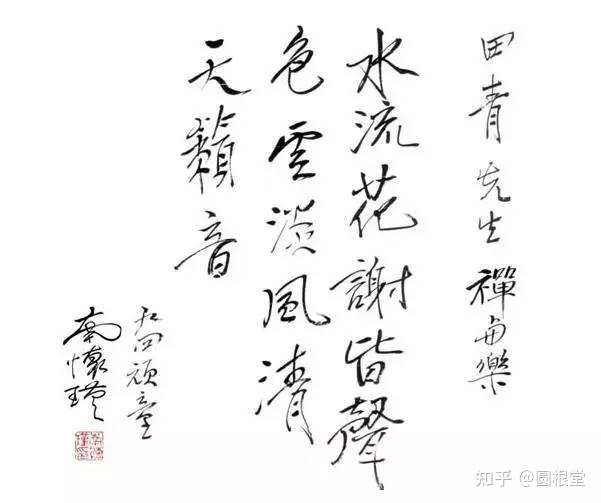 田青先生禪与樂
水流花謝皆聲
色雲淡風清
天籟音
九四頑童
南懷瑾
知乎 @圆根堂